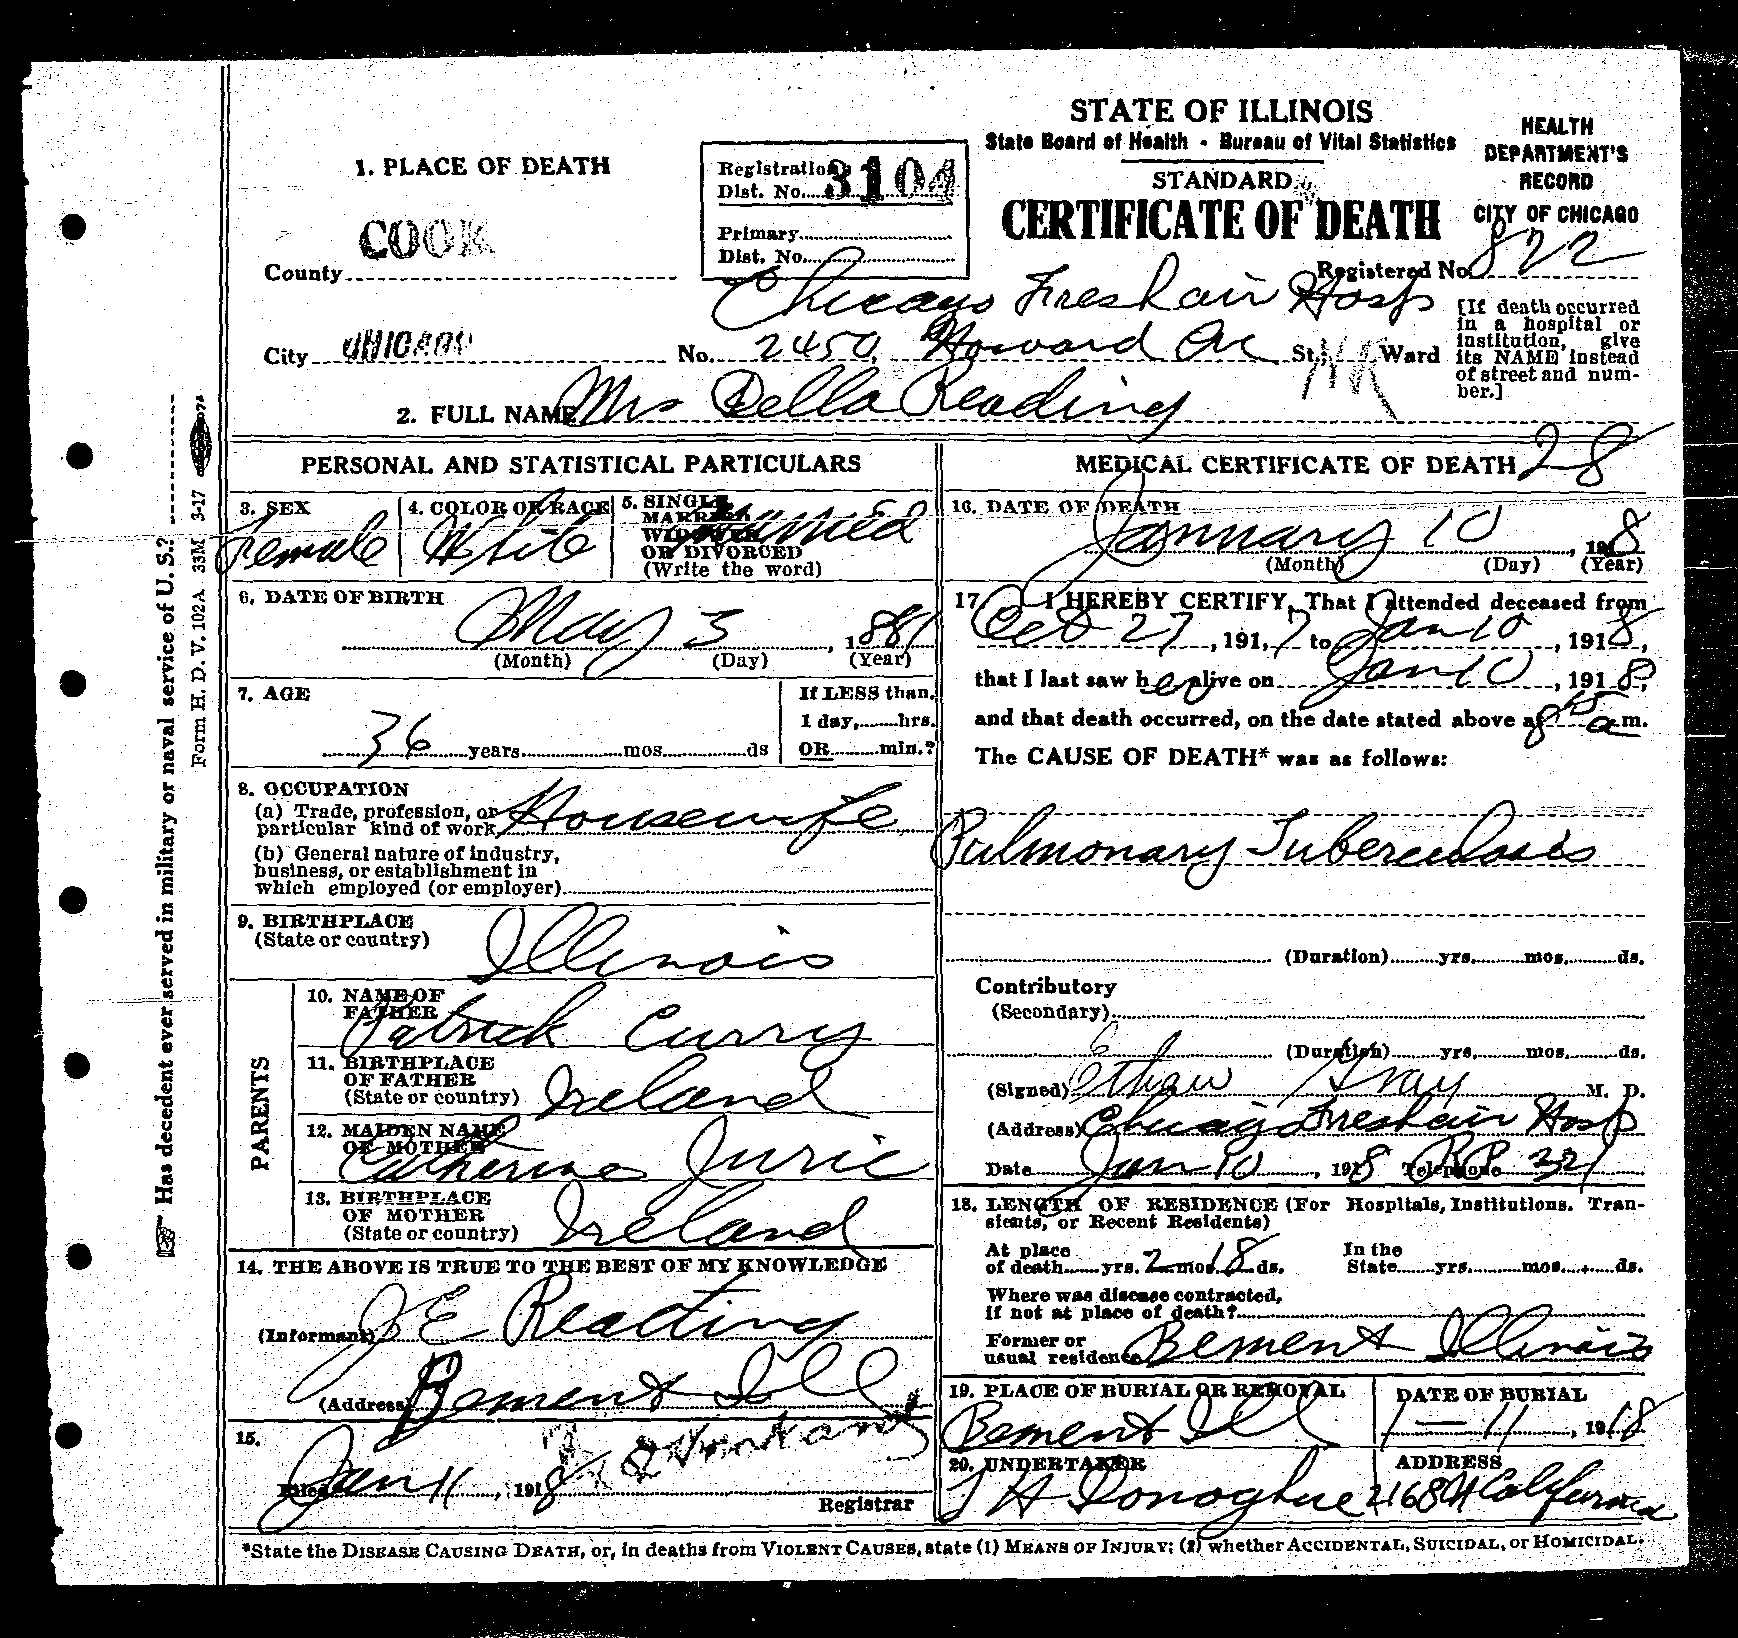 STATE OF ILLINOIS
State Board of Health - Bureau of Vital Statistics
STANDARD
CERTIFICATE OF DEATH
HEALTH
DEPARTMENT'S
RECORD
CITY OF CHICAGO
Registered No. 822
1. PLACE OF DEATH
Registration
Dist. No. 3104
Primary
Dist. No.
County COOK
Chicago Freshair Hosp
[If death occurred
in a hospital or
institution, give
its NAME instead
of street and num-
ber.]
City CHICAGO No. 2450 Howard Ave St.; Ward
2. FULL NAME Mrs Della Reading
PERSONAL AND STATISTICAL PARTICULARS
3. SEX
Female
4. COLOR OR RACE
White
5. SINGLE
MARRIED
WIDOWED
OR DIVORCED
(Write the word)
Married
6. DATE OF BIRTH
May 3, 1881
(Month) (Day) (Year)
7. AGE
36 years mos ds
If LESS than
1 day, hrs.
OR min.?
8. OCCUPATION
(a) Trade, profession, or
particular kind of work Housewife
(b) General nature of industry,
business, or establishment in
which employed (or employer)
9. BIRTHPLACE
(State or country) Illinois
PARENTS
10. NAME OF
FATHER Patrick Curry
11. BIRTHPLACE
OF FATHER
(State or country) Ireland
12. MAIDEN NAME
OF MOTHER Catherine
13. BIRTHPLACE
OF MOTHER
(State or country) Ireland
14. THE ABOVE IS TRUE TO THE BEST OF MY KNOWLEDGE
(Informant) J E Reading
(Address) Bement Ill
15.
Filed Jan 11, 1918
Registrar
MEDICAL CERTIFICATE OF DEATH 28
16. DATE OF DEATH
January 10, 1918
(Month) (Day) (Year)
17 I HEREBY CERTIFY, That I attended deceased from
Oct 27, 191,7 to Jan 10, 1918,
that I last saw her alive on Jan 10, 1918,
and that death occurred, on the date stated above at 8 15 a m.
The CAUSE OF DEATH* was as follows:
Pulmonary Tuberculosis
(Duration) yrs. mos. ds.
Contributory
(Secondary)
(Duration) yrs. mos. ds.
(Signed) Ethan Gray M. D.
(Address) Chicago Freshair Hosp
Date Jan 10, 1918 Telephone RP 321
18. LENGTH OF RESIDENCE (For Hospitals, Institutions, Tran-
sients, or Recent Residents)
At place
of death yrs. 2 mos. 18 ds.
In the
State yrs. mos. ds.
Where was disease contracted,
if not at place of death?
Former or
usual residence Bement Illinois
19. PLACE OF BURIAL OR REMOVAL
Bement Ill
DATE OF BURIAL
1 - 11, 1918
20. UNDERTAKER
J H Donoghue
ADDRESS
2168 N California
*State the DISEASE CAUSING DEATH, or, in deaths from VIOLENT CAUSES, state (1) MEANS OF INJURY; (2) whether ACCIDENTAL, SUICIDAL, or HOMICIDAL.
Has decedent ever served in military or naval service of U. S.?
Form H. D. V. 102A 33M 3-17